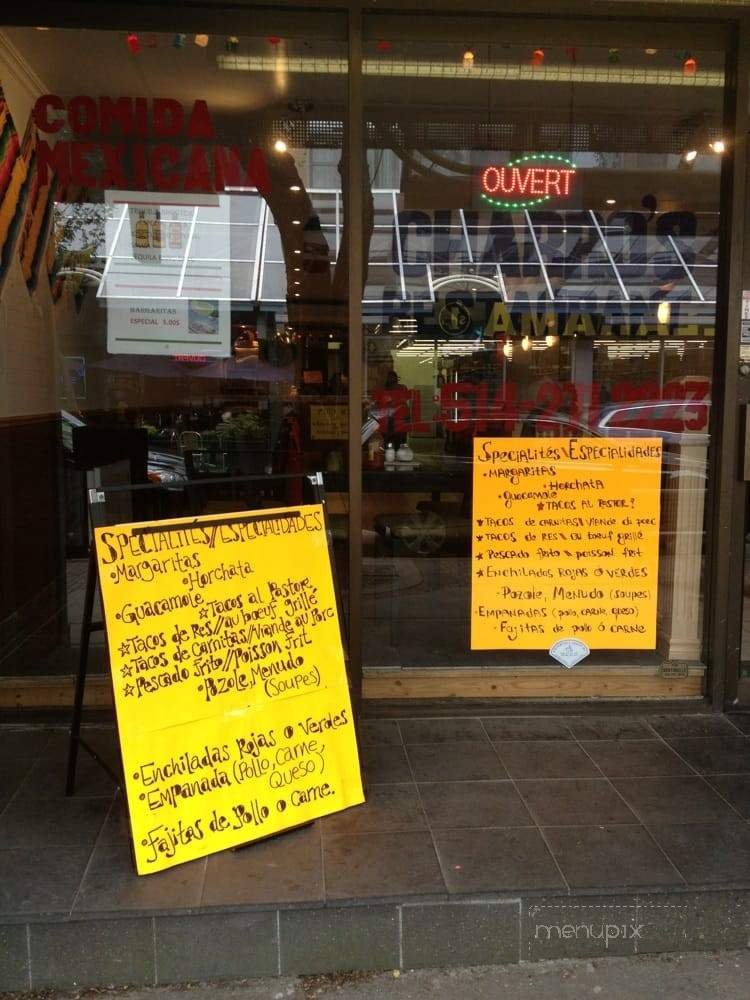 COMIDA
MEXICANA
OUVERT
MARGARITAS
ESPECIAL 5.00$
TEL: 514-
SPECIALITÉS//ESPECIALIDADES
•MARGARITAS
•HORCHATA
•GUACAMOLE
☆TACOS al PASTORE
☆TACOS de Res//au boeuf grillé
☆TACOS de CARNITAS//Viande au Porc
☆PESCADO frito//Poisson frit
•POZOLE, Menudo
(SOUPES)
•Enchiladas Rojas o Verdes
•EMPANADA (POLLO, CARNE,
QUESO)
•Fajitas de Pollo o Carne.
SPECIALITÉS\ESPECIALIDADES
•MARGARITAS
•HORCHATA
•GUACAMOLE
★TACOS AL PASTOR!
★TACOS DE CARNITAS\\VIANDE DE PORC
★TACOS DE RES\\AU BOEUF GRILLÉ
★PESCADO frito\\POISSON frit
★ENCHILADOS ROJAS Ó VERDES
•POZOLE, MENUDO (SOUPES)
•EMPANADAS (POLLO, CARNE, QUESO)
•FAJITAS DE POLLO Ó CARNE
menupix